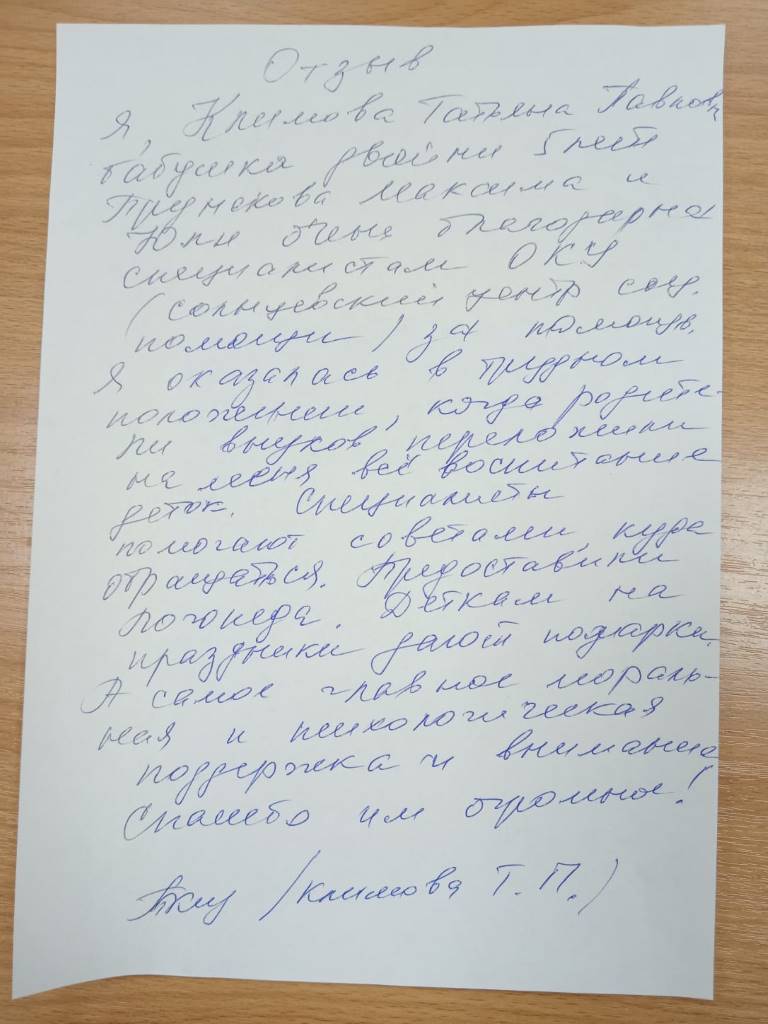 Отзыв
Я, Климова Татьяна Павловн
бабушка двойни 5 лет
Максима и
Юли очень благодарна
специалистам ОКУ
(солнцевский центр соц.
помощи) за помощь.
Я оказалась в трудном
положении, когда родите-
ли внуков переложили
на меня всё воспитание
деток. Специалисты
помогают советами, куда
обращаться. Предоставили
логопеда. Деткам на
праздники дают подарки.
А самое главное мораль-
ная и психологическая
поддержка и внимание
Спасибо им огромное!
(Климова Т.П.)